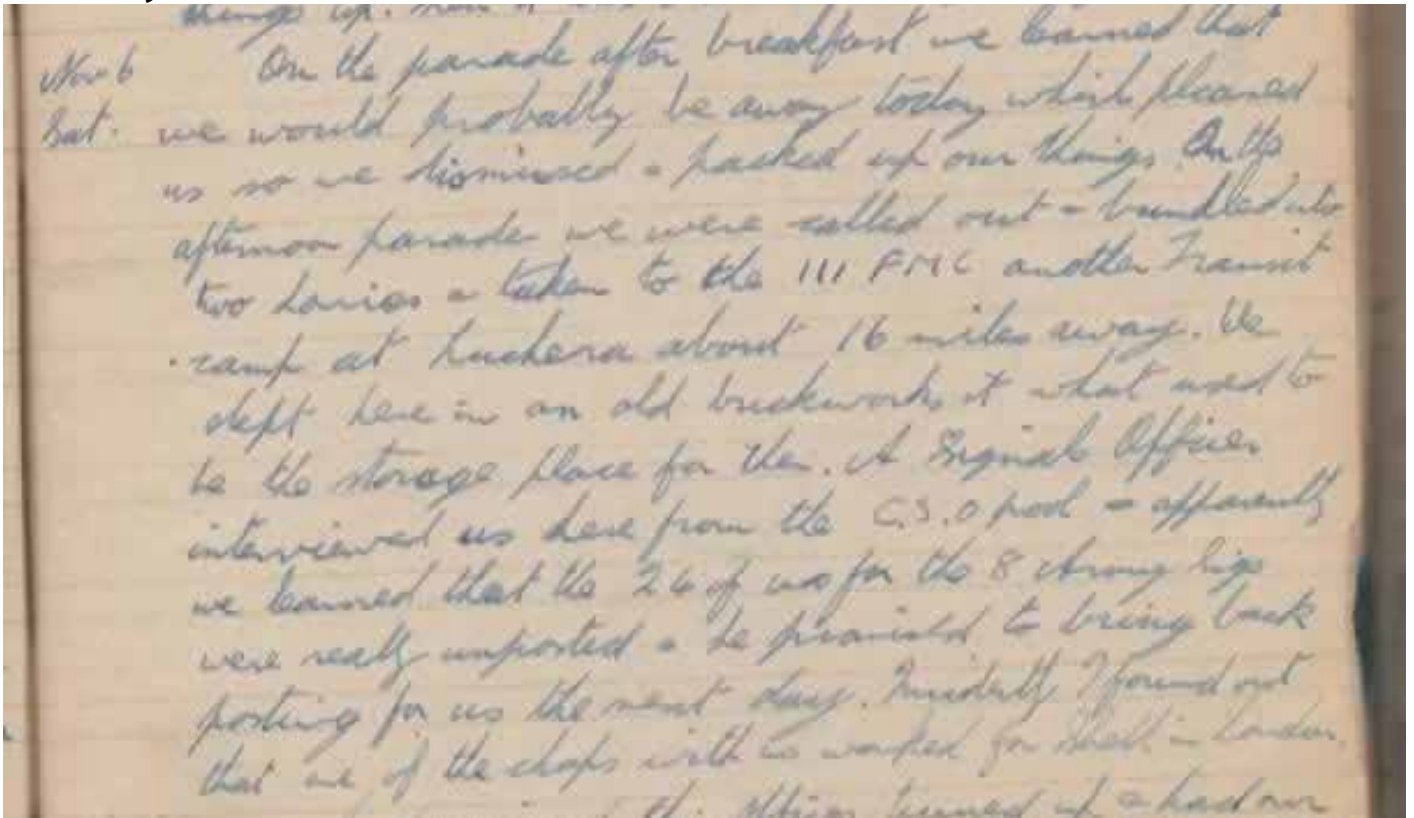 things up.
Nov 6 On the parade after breakfast we learned that
Sat. we would probably be away today which pleased
us so we dismissed & packed up our things. On the
afternoon parade we were called out & bundled into
two lorries & taken to the 111 FMC another Transit
camp at Luchera about 16 miles away. We
slept here in an old brickworks at what used to
be the storage place for them. A Signals Officer
interviewed us here from the C.S.O pool & apparently
we learned that the 26 of us for the 8 Army Sigs
were really unposted & he promised to bring back
posting for us the next day. Incidently I found out
that one of the chaps with us worked for Shell in London.
officer turned up & had our